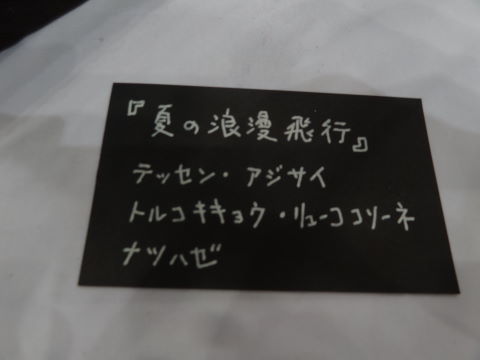 『夏の浪漫飛行』
テッセン・アジサイ
トルコキキョウ・リューココリーネ
ナツハゼ